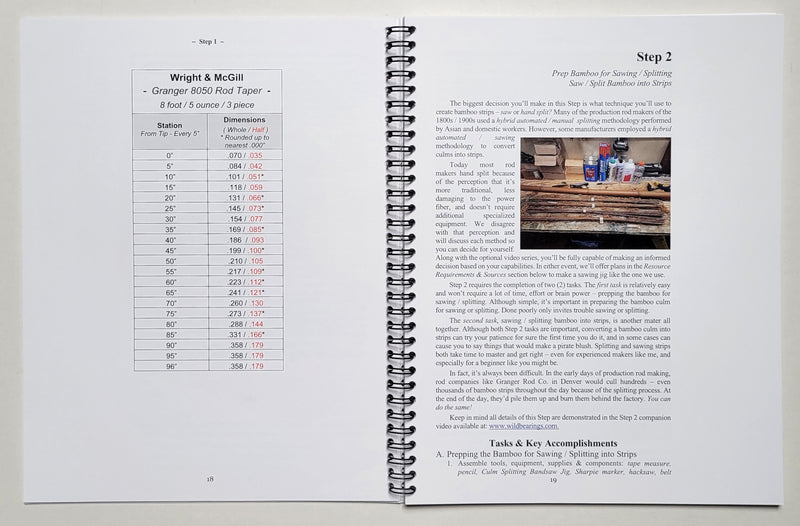 ~ Step 1 ~
Wright & McGill
- Granger 8050 Rod Taper -
8 foot / 5 ounce / 3 piece
Station
From Tip - Every 5"
Dimensions
( Whole / Half )
* Rounded up to
nearest .000"
0" .070 / .035
5" .084 / .042
10" .101 / .051*
15" .118 / .059
20" .131 / .066*
25" .145 / .073*
30" .154 / .077
35" .169 / .085*
40" .186 / .093
45" .199 / .100*
50" .210 / .105
55" .217 / .109*
60" .223 / .112*
65" .241 / .121*
70" .260 / .130
75" .273 / .137*
80" .288 / .144
85" .331 / .166*
90" .358 / .179
95" .358 / .179
96" .358 / .179
18
Step 2
Prep Bamboo for Sawing / Splitting
Saw / Split Bamboo into Strips
The biggest decision you'll make in this Step is what technique you'll use to
create bamboo strips – saw or hand split? Many of the production rod makers of the
1800s / 1900s used a hybrid automated / manual splitting methodology performed
by Asian and domestic workers. However, some manufacturers employed a hybrid
automated / sawing
methodology to convert
culms into strips.
Today most rod
makers hand split because
of the perception that it's
more traditional, less
damaging to the power
fiber, and doesn't require
additional specialized
equipment. We disagree
with that perception and
will discuss each method so
you can decide for yourself.
Along with the optional video series, you'll be fully capable of making an informed
decision based on your capabilities. In either event, we'll offer plans in the Resource
Requirements & Sources section below to make a sawing jig like the one we use.
Step 2 requires the completion of two (2) tasks. The first task is relatively easy
and won't require a lot of time, effort or brain power – prepping the bamboo for
sawing / splitting. Although simple, it's important in preparing the bamboo culm
for sawing or splitting. Done poorly only invites trouble sawing or splitting.
The second task, sawing / splitting bamboo into strips, is another mater all
together. Although both Step 2 tasks are important, converting a bamboo culm into
strips can try your patience for sure the first time you do it, and in some cases can
cause you to say things that would make a pirate blush. Splitting and sawing strips
both take time to master and get right – even for experienced makers like me, and
especially for a beginner like you might be.
In fact, it's always been difficult. In the early days of production rod making,
rod companies like Granger Rod Co. in Denver would cull hundreds – even
thousands of bamboo strips throughout the day because of the splitting process. At
the end of the day, they'd pile them up and burn them behind the factory. You can
do the same!
Keep in mind all details of this Step are demonstrated in the Step 2 companion
video available at: www.wildbearings.com.
Tasks & Key Accomplishments
A. Prepping the Bamboo for Sawing / Splitting into Strips
1. Assemble tools, equipment, supplies & components: tape measure,
pencil, Culm Splitting Bandsaw Jig, Sharpie marker, hacksaw, belt
19